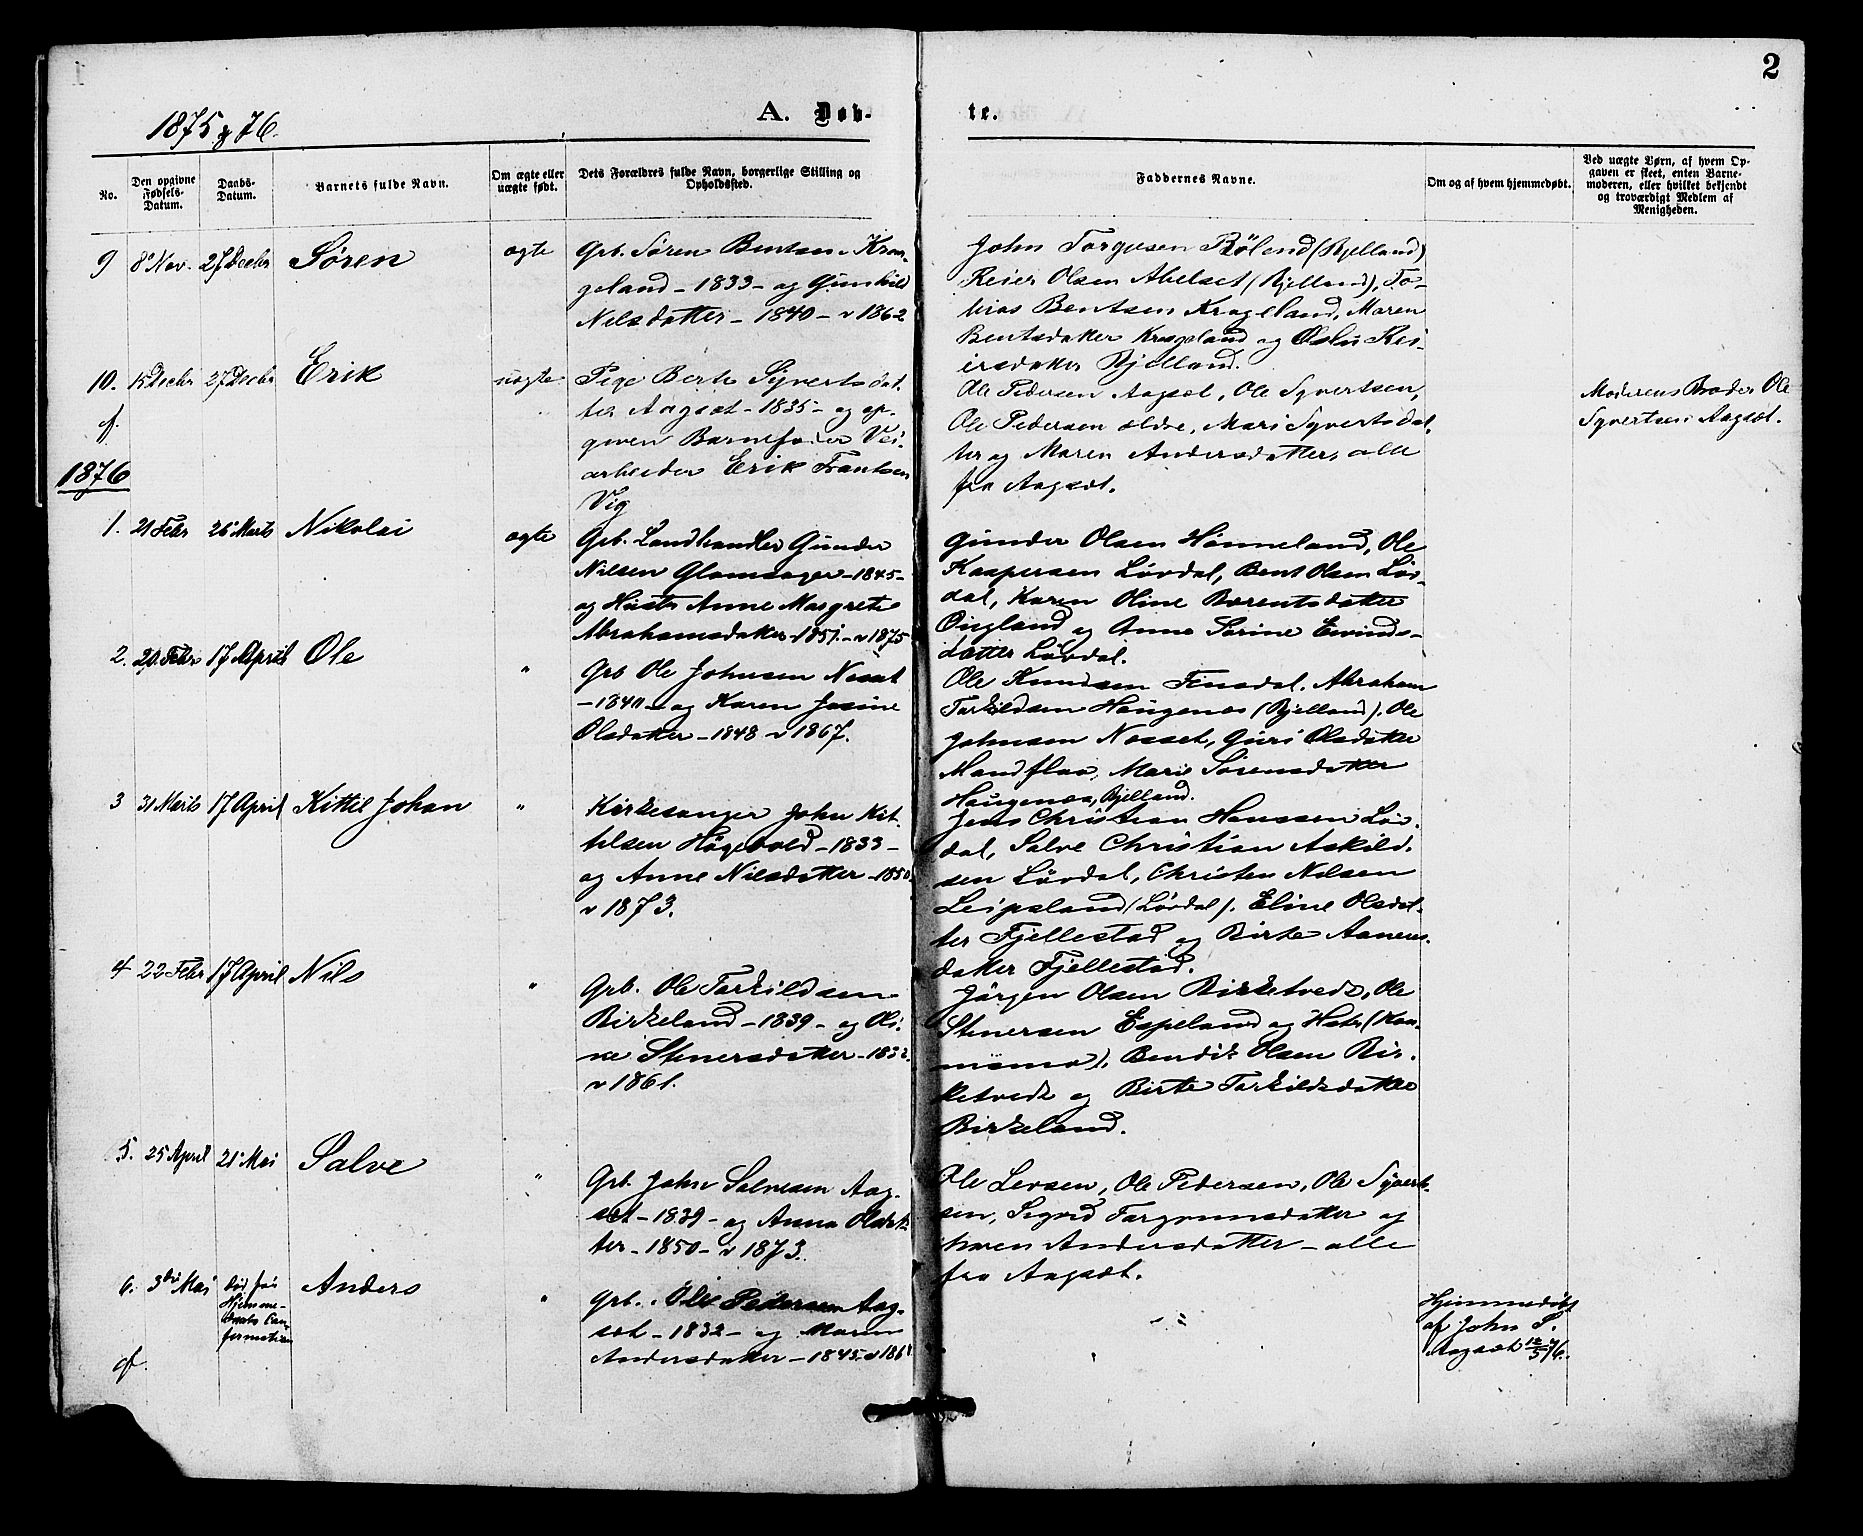 2
1875 & 76.
A. Døb-
te.
No.
Den opgivne Fødsels-Datum.
Daabs-Datum.
Barnets fulde Navn.
Om ægte eller uægte født.
Dets Forældres fulde Navn, borgerlige Stilling og Opholdssted.
Faddernes Navne.
Om og af hvem hjemmedøbt.
Ved uægte Børn, af hvem Op-
gaven er skeet, enten Barne-
moderen, eller hvilket bekjendt
og troværdigt Medlem af
Menigheden.
9 8de Nov. 27 Decbr Søren ægte
Grb. Søren Bentsen Kra-
geland - 1833 - og Gunhild
Nilsdatter - 1840 - v 1862
John Torgusen Røland (Bjelland)
Reier Olsen Abelset (Bjelland), To-
bias Bentsen Krageland, Maren
Bentsdatter Krageland og Rei-
ersdatter Bjelland.
10. 15 Decbr 27 Decbr Erik uægte
Pige Berte Syvertsdat-
ter Aagsæt - 1835 - og op-
given Barnefader Vei-
arbeider Erik Frantsen
Vig
Ole Pedersen Aagsæt, Ole Syvertsen,
Ole Pedersen ældre, Mari Syvertsdat-
ter og Maren Andersdatter, alle
fra Aagsæt.
Moderens Broder Ole
Syvertsen Aagsæt.
1876
1. 21 Febr 26 Marts Nikolai ægte
Grb. Landhandler Gunder
Nilsen Glomsager - 1845 -
og Hustr Anne Margrete
Abrahamsdatter - 1851. - v 1875
Gunder Olsen Hønneland, Ole
Kaspersen Løvdal, Bent Olsen Løv-
dal, Karen Oline Berentsdatter
Øigland og Anne Sørine Eivinds-
datter Løvdal.
2. 20. Febr 17 April Ole "
Grb Ole Johnsen Nosset
- 1840 - og Karen Josine
Olsdatter - 1848 v 1867.
Ole Knudsen Finsdal, Abraham
Torkildsen Haugenes (Bjelland), Ole
Johnsen Nosset, Guri Olsdatter
Mandflaa, Marie Sørensdatter
Haugenes, Bjelland.
3 31 Marts 17 April Kittil Johan "
Kirkesanger John Kit-
tilsen Høgevold - 1833 -
og Anne Nilsdatter - 1850
v 1873.
Jens Christian Hanssen Løv-
dal, Salve Christian Askild-
sen Løvdal, Christen Nilsen
Leipsland (Løvdal), Eline Olsdat-
ter Fjellestad og Birte Aanens-
datter Fjellestad.
4 22 Febr 17 April Nils "
Grb. Ole Torkildsen
Birkeland - 1839 - og Oli-
ne Stenersdatter - 1832
v 1861.
Jørgen Olsen Birketvedt, Ole
Stenersen Espeland og Hstr (Kon-
, Bendik Olsen Bir-
ketvedt og Birte Torkildsdatter
Birkeland.
5. 25 April 21 Mai Salve "
Grb. John Salvesen Aag-
sæt - 1839 - og Anna Olsdat-
ter - 1850 - v 1873.
Ole Larsen, Ole Pedersen, Ole Syvert-
sen, Sigrid Torgrimsdatter og
Maren Andersdatter - alle
fra Aagsæt.
6. 3die Mai død før
Hjemme-
daabs Con-
firmation
Anders "
Grb. Ole Pedersen Aag-
sæt - 1832 - og Maren
Andersdatter - 1845 v 186
Hjemmedøbt
af John S.
Aagsæt 12/5 76.